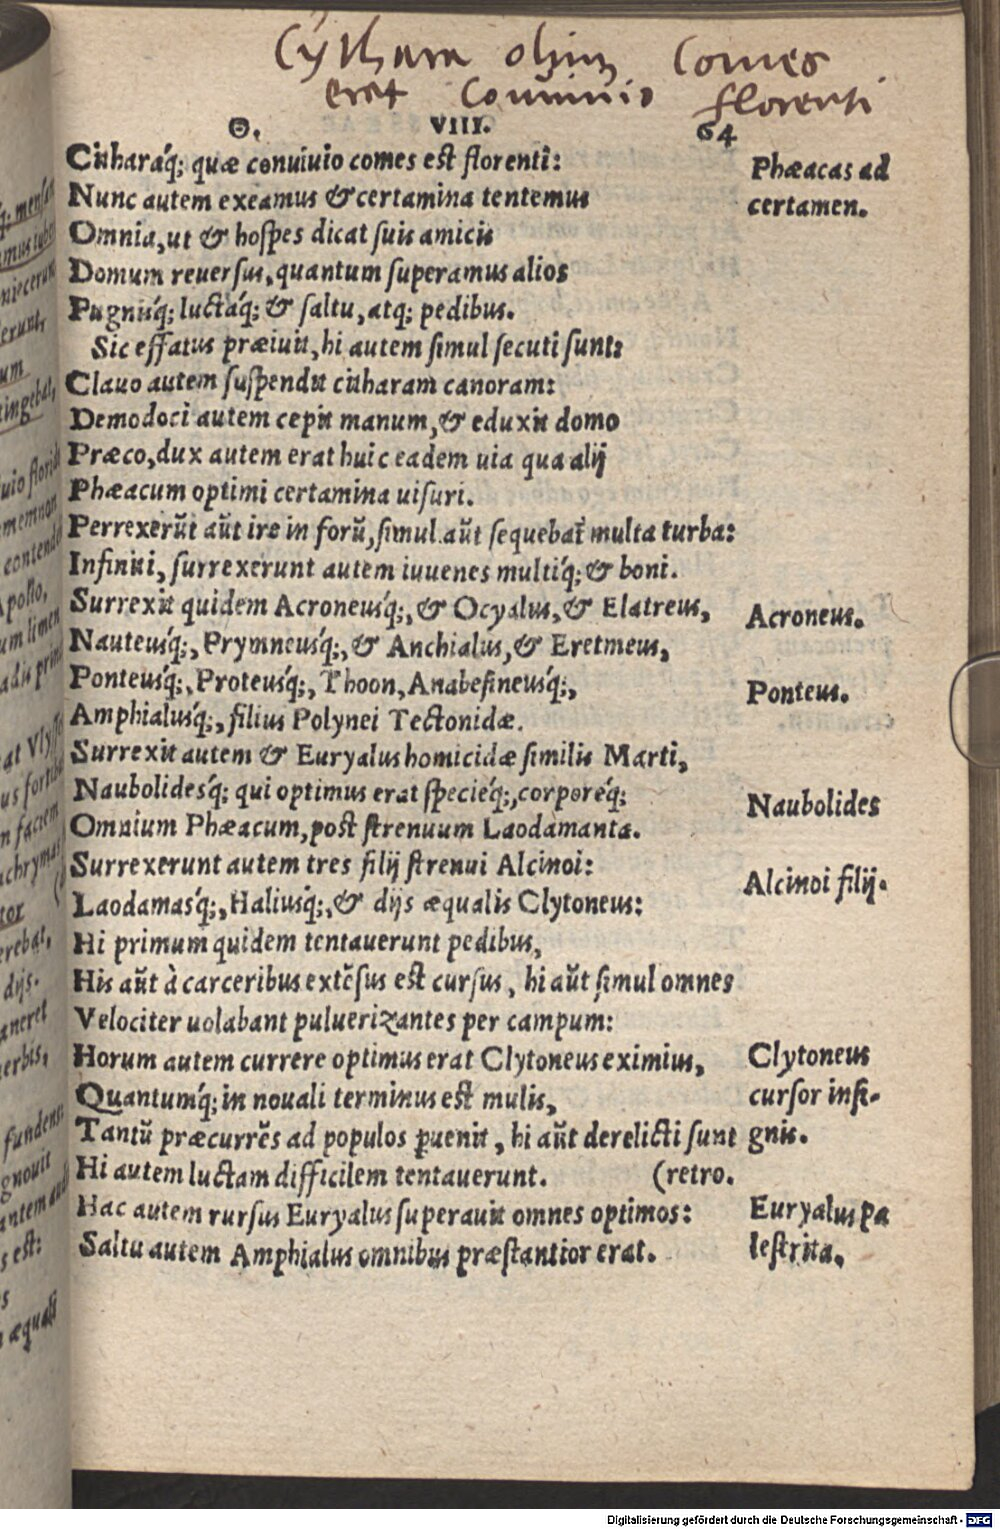 Cythara olim comes
erat conuiuio florenti
Θ. VIII. 64
Citharáq; quæ conuiuio comes est florenti:
Nunc autem exeamus & certamina tentemus
Omnia, ut & hospes dicat suis amicis
Domum reuersus, quantum superamus alios
Pugnisq́; luctáq; & saltu, atq; pedibus.
Sic effatus præiuit, hi autem simul secuti sunt:
Clauo autem suspendit citharam canoram:
Demodoci autem cepit manum, & eduxit domo
Præco, dux autem erat huic eadem uia qua alij
Phæacum optimi certamina uisuri.
Perrexerūt aūt ire in forū, simul aūt sequebat̄ multa turba:
Infiniti, surrexerunt autem iuuenes multiq́; & boni.
Surrexit quidem Acroneusq́;, & Ocyalus, & Elatreus,
Nauteusq́;, Prymneusq́;, & Anchialus, & Eretmeus,
Ponteusq́;, Proteusq́;, Thoon, Anabesineusq́;,
Amphialusq́;, filius Polynei Tectonidæ.
Surrexit autem & Euryalus homicidæ similis Marti,
Naubolidesq́; qui optimus erat specieq́;, corporeq́;
Omnium Phæacum, post strenuum Laodamanta.
Surrexerunt autem tres filij strenui Alcinoi:
Laodamasq́;, Haliusq́;, & dijs æqualis Clytoneus:
Hi primum quidem tentauerunt pedibus,
His aūt à carceribus extēsus est cursus, hi aūt simul omnes
Velociter uolabant puluerizantes per campum:
Horum autem currere optimus erat Clytoneus eximius,
Quantumq́; in nouali terminus est mulis,
Tantū præcurrēs ad populos ꝑuenit, hi aūt derelicti sunt
Hi autem luctam difficilem tentauerunt. (retro.
Hac autem rursus Euryalus superauit omnes optimos:
Saltu autem Amphialus omnibus præstantior erat.
Phæacas ad
certamen.
Acroneus.
Ponteus.
Naubolides
Alcinoi filij.
Clytoneus
cursor insi-
gnis.
Euryalus pa
lestrita.
Digitalisierung gefördert durch die Deutsche Forschungsgemeinschaft - DFG